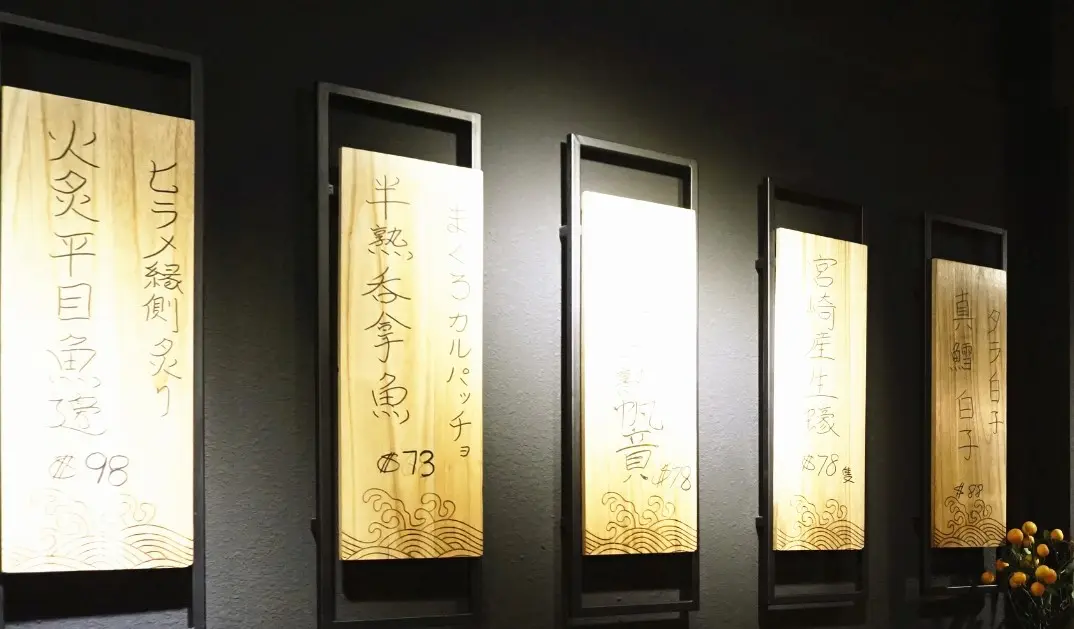 ヒラメ縁側炙り
火炙平目魚邊
$98
まくろカルパッチョ
半熟吞拿魚
$73
帆立貝
$78
宮崎産生蠔
$78隻
タラ白子
真鱈白子
$88